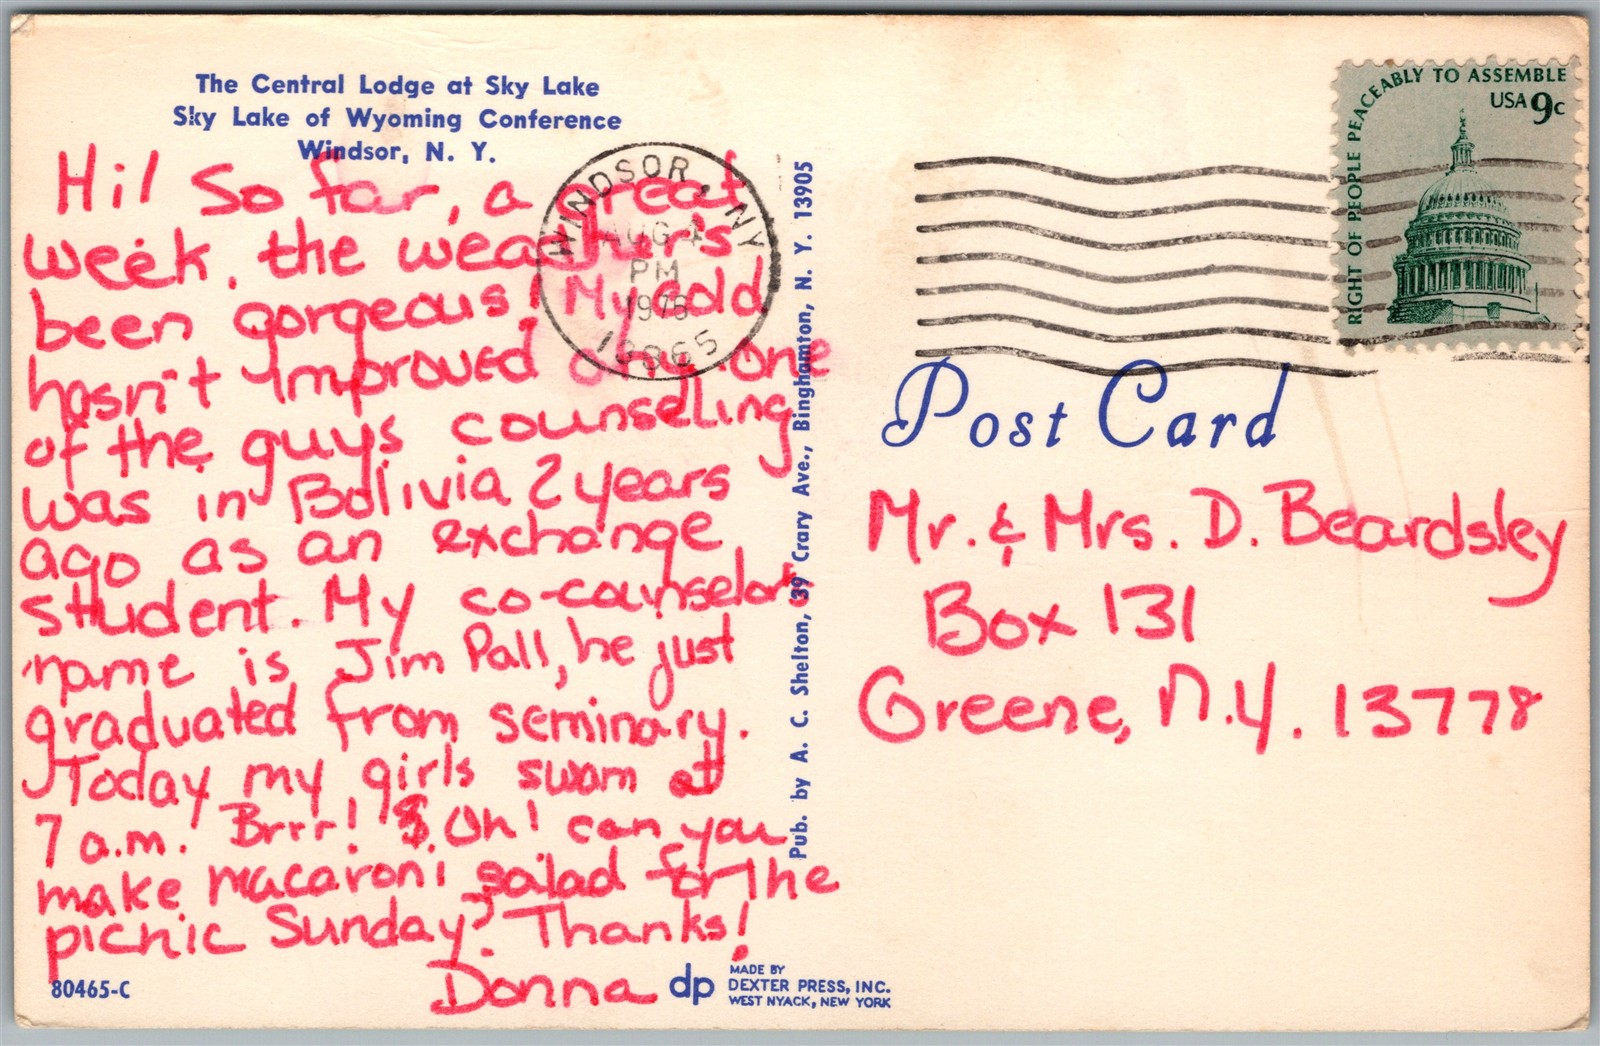 The Central Lodge at Sky Lake
Sky Lake of Wyoming Conference
Windsor, N. Y.
Hi! So far, a great
week, the weather's
been gorgeous! My cold
hasn't improved any. one
of the guys counseling
was in Bolivia 2 years
ago as an exchange
student. My co-counselors
name is Jim Pall, he just
graduated from seminary.
Today my girls swam at
7 a.m.! Brrr! $. Oh! can you
make macaroni salad for the
picnic Sunday? Thanks!
Donna
80465-C
dp
MADE BY
DEXTER PRESS, INC.
WEST NYACK, NEW YORK
Pub. by A. C. Shelton, 39 Crary Ave., Binghamton, N. Y. 13905
WINDSOR, NY
AUG 4
PM
13865
RIGHT OF PEOPLE PEACEABLY TO ASSEMBLE
USA 9c
Post Card
Mr. & Mrs. D. Beardsley
Box 131
Greene, N.Y. 13778